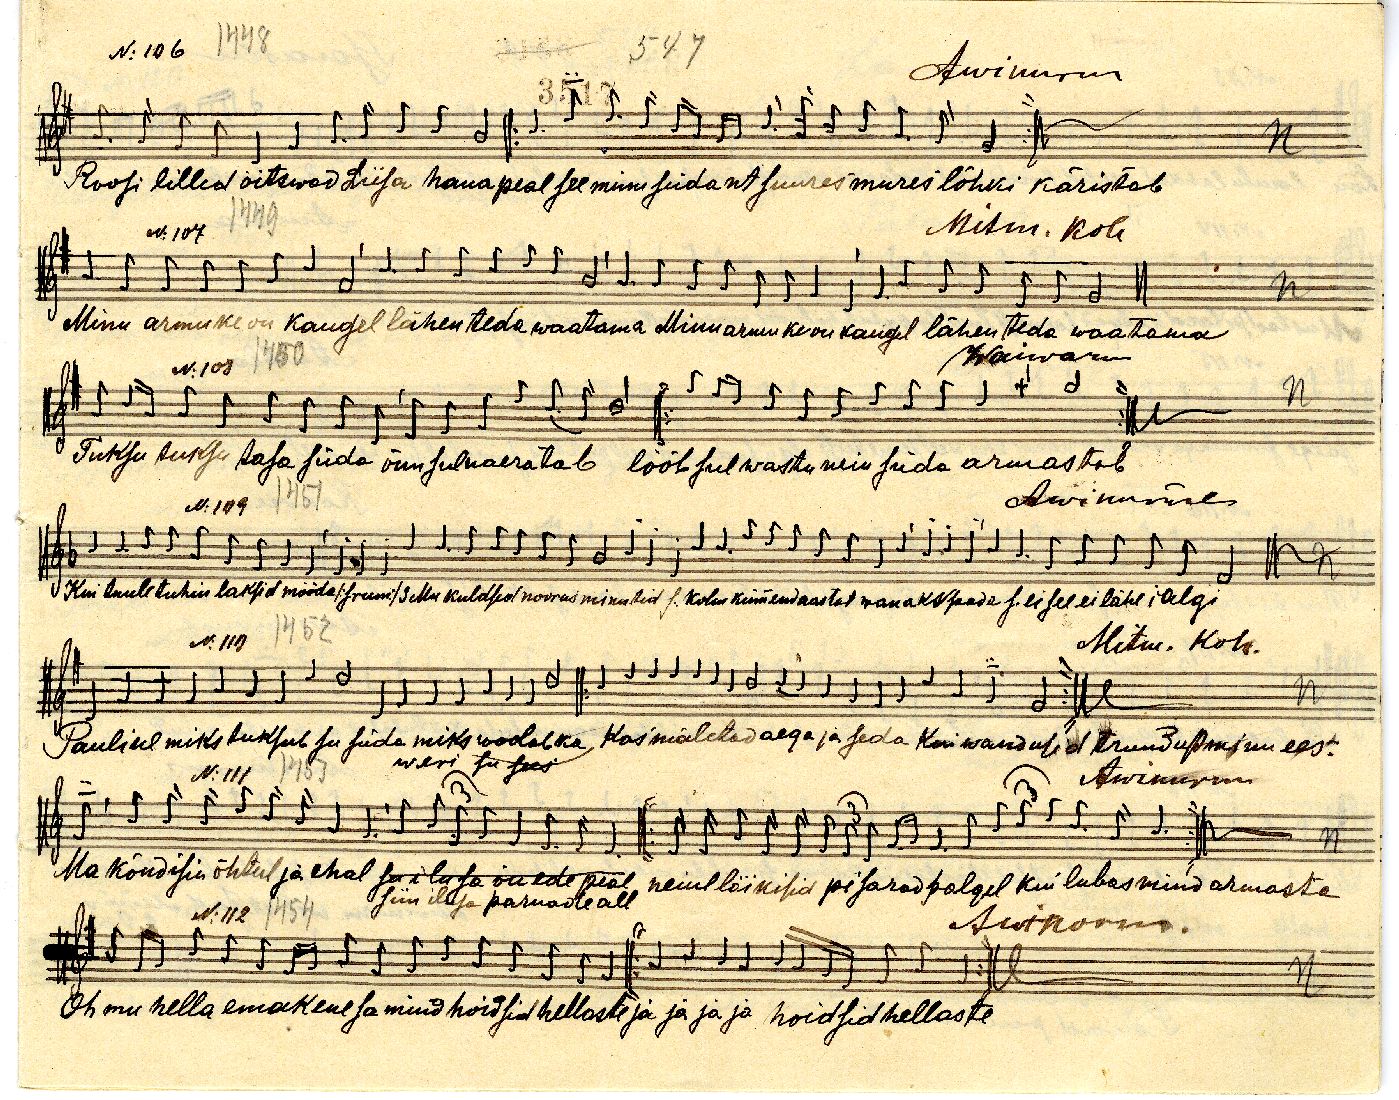 N: 106 1448 547
3517
Awinurm
Roosi lilled öitswad Liisa haua peal see minu südant suures mures lõhki käristab
N: 107 1449
Mitm. Koh
Minu armuke on kaugel lähen teda waatama Minu armuke on kaugel lähen teda waatama
N: 108 1450
Waiwara
Tuksu tuksu tasa süda õnn sul naeratab lööb sul wastu nein süda armastab
N: 109 1451
Kui tuule tuhin laksid mööda /: /: Mu kuldsed noorus minutid /: kolm kümend aastat wanaks saada /: ei see ei lähe ialgi
N: 110 1452
Mitm. Koh.
Pauline miks tuksub su süda miks wodab ka kas mäletad aega ja seda Kui wandusid truudust minu eest.
weri su sees
N: 111 1453
Awinurm
Ma kõndisin õhtul ja ehal su ilusa õuede peal neiul läikisid pisarad palgel kui lubas mind armasta
siin ilusa parnade all
N: 112 1454
Awinorm.
Oh mu hella emakene sa mind hoidsid hellaste ja ja ja ja hoidsid hellaste